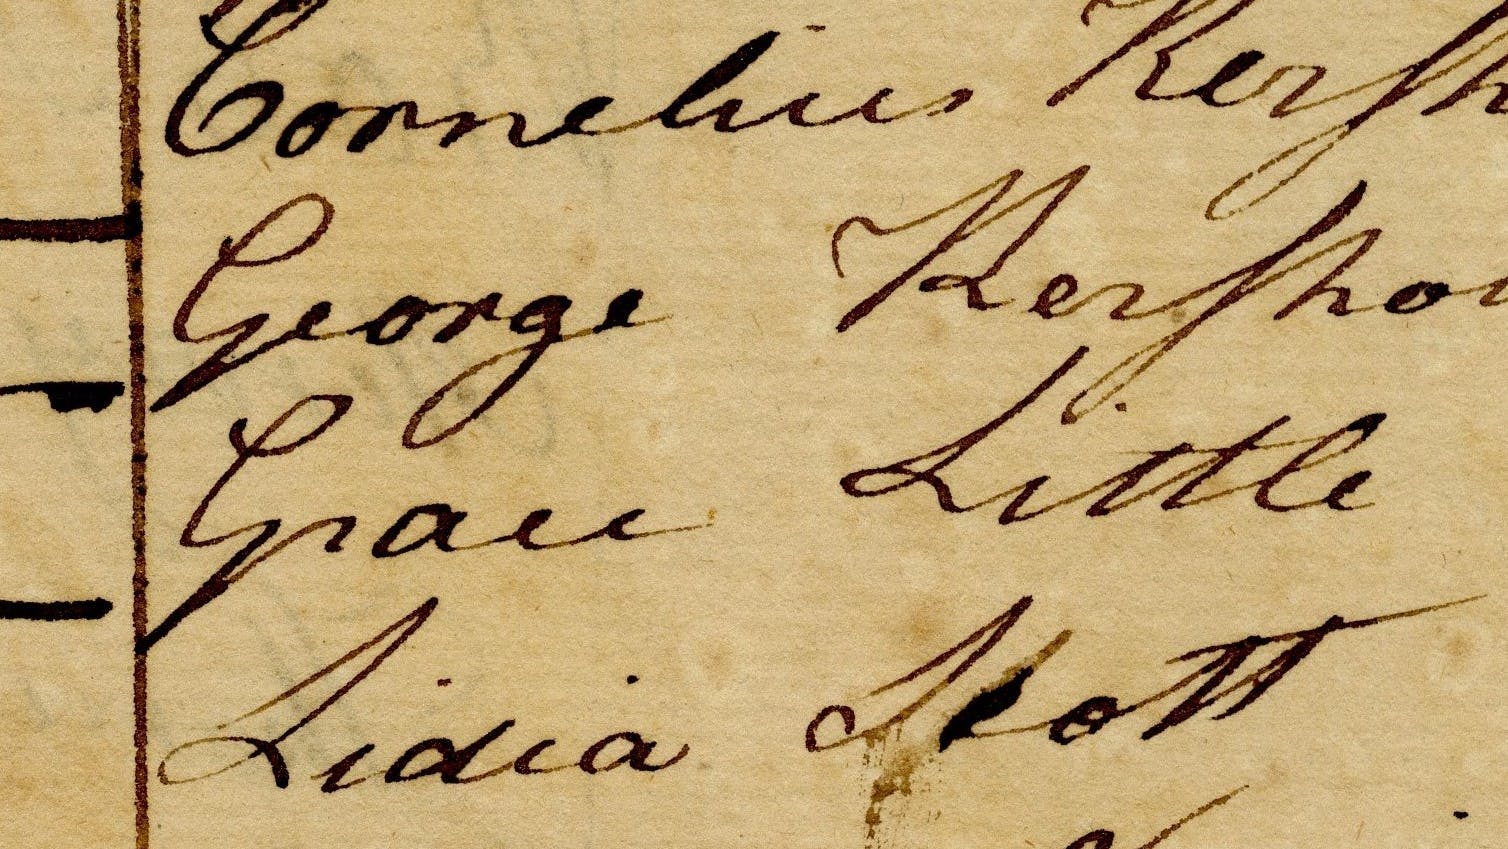 Cornelius Kerſh
George Kerſho
Grace Little
Lidia Scott